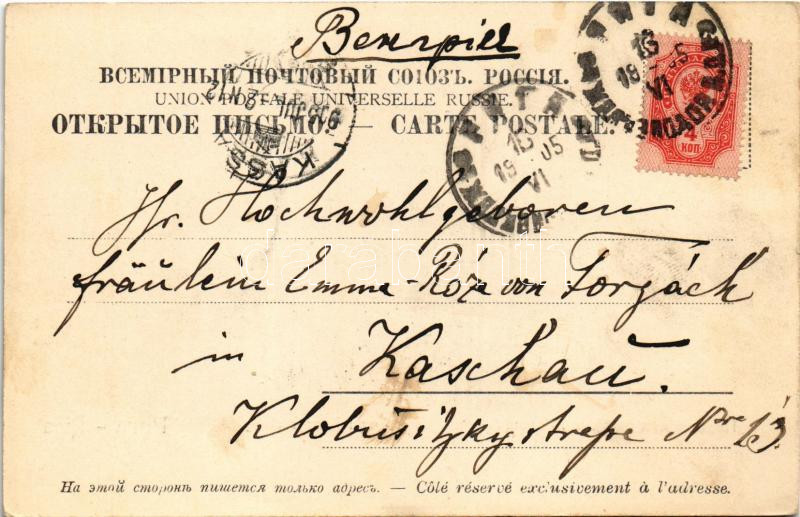 Венгрія
ВСЕМІРНЫЙ ПОЧТОВЫЙ СОЮЗЪ. РОССІЯ.
UNION POSTALE UNIVERSELLE RUSSIE.
ОТКРЫТОЕ ПИСЬМО. — CARTE POSTALE.
РИГА
18 05
VI
4
КОП
KASS
Hr. Hochwohlgeboren
fräulein Emma-Róza von Forgách
in Kaschau.
Klobusitzkystrasse Nre 13.
На этой сторонѣ пишется только адресъ. — Côté réservé exclusivement à l'adresse.